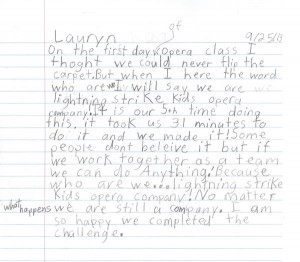 Lauryn 9/25/15
On the first day of opera class I
thoght we could never flip the
carpet. But when I here the word
who are we I will say we are
lightning strike kids opera
company. It is our 5th time doing
this, it took us 31 minutes to
do it and we made it! Some
people dont beleive it but if
we work together as a team
we can do Anything! Because
who are we... lightning strike
Kids opera company! No matter
what happens we are still a company. I am
so happy we completed the
challenge.